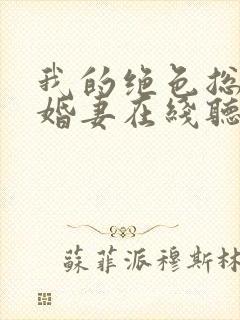 我的绝色总
婚妻在线聽
蘇菲派穆斯林